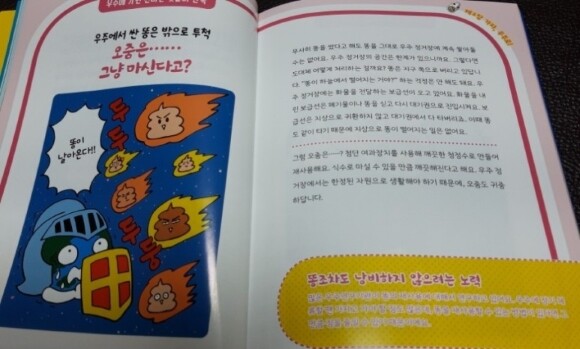 우주에서 싼 똥은 밖으로 투척
오줌은……
그냥 마신다고?
똥이
날아온다!!
두
두
두
두
무사히 똥을 쌌다고 해도 똥을 그대로 우주 정거장에 계속 쌓아둘
수는 없어요. 우주 정거장의 공간은 한계가 있으니까요. 그렇다면
도대체 어떻게 처리하는 걸까요? 똥은 지구 쪽으로 버리고 있답니
다. "똥이 하늘에서 떨어지는 거야?" 하는 걱정은 안 해도 돼요. 우
주 정거장에는 화물을 전달하는 보급선이 오고 있어요. 화물을 내
린 보급선은 폐기물이나 똥을 싣고 다시 대기권으로 진입시켜요. 보
급선은 지상으로 귀환하지 않고 대기권에서 다 타버리죠. 이때 똥
도 같이 타기 때문에 지상으로 똥이 떨어지는 일은 없어요.
그럼 오줌은……? 첨단 여과장치를 사용해 깨끗한 청정수로 만들어
재사용해요. 식수로 마실 수 있을 만큼 깨끗해진다고 해요. 우주 정
거장에서는 한정된 자원으로 생활해야 하기 때문에, 오줌도 귀중
하답니다.
똥조차도 낭비하지 않으려는 노력